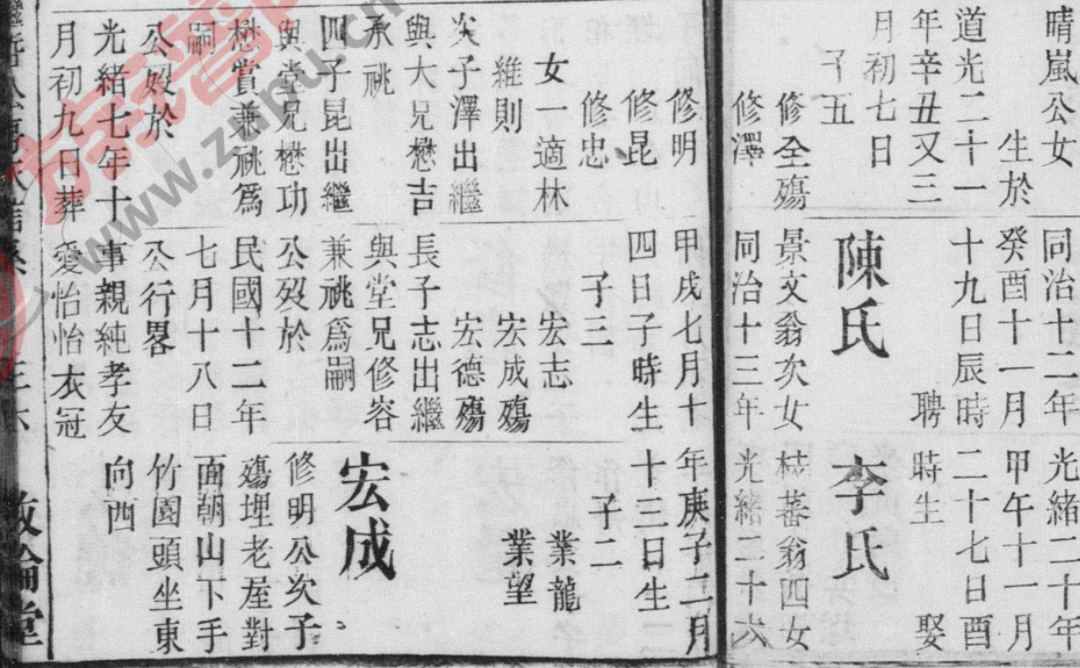 晴嵐公女
生於
道光二十一
年辛丑又三
月初七日
子五
修全殤
修澤
修明
修昆
修忠
女一適林
維則
次子澤出繼
與大兄懋吉
承祧
四子昆出繼
與堂兄懋功
懋賞兼祧爲
嗣
公歿於
光緒七年十
月初九日葬
同治十二年
癸酉十一月
十九日辰時
聘
陳氏
景文翁次女
同治十三年
甲戌七月十
四日子時生
子三
宏志
宏成殤
宏德殤
長子志出繼
與堂兄修容
兼祧爲嗣
公歿於
民國十二年
七月十八日
公行畧
事親純孝友
愛怡怡衣冠
光緒二十年
甲午十一月
二十七日酉
時生 娶
李氏
桂蕃翁四女
光緒二十六
年庚子二月
十三日生
子二
業龍
業望
宏成
修明公次子
殤埋老屋對
面朝山下手
竹園頭坐東
向西
倫堂
www.zipu.cn